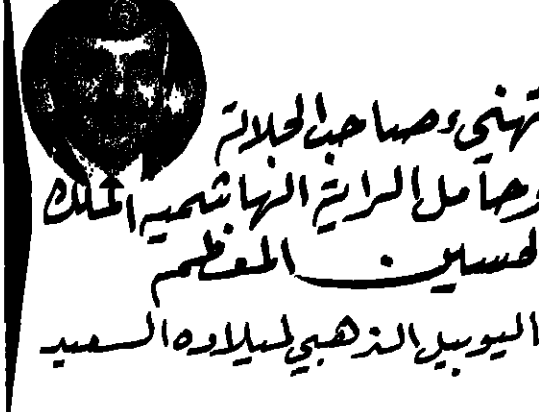 تهنيء صاحب الجلالة
وحامل الراية الهاشمية الملك
حسين المعظم
اليوبيل الذهبي لميلاده السعيد